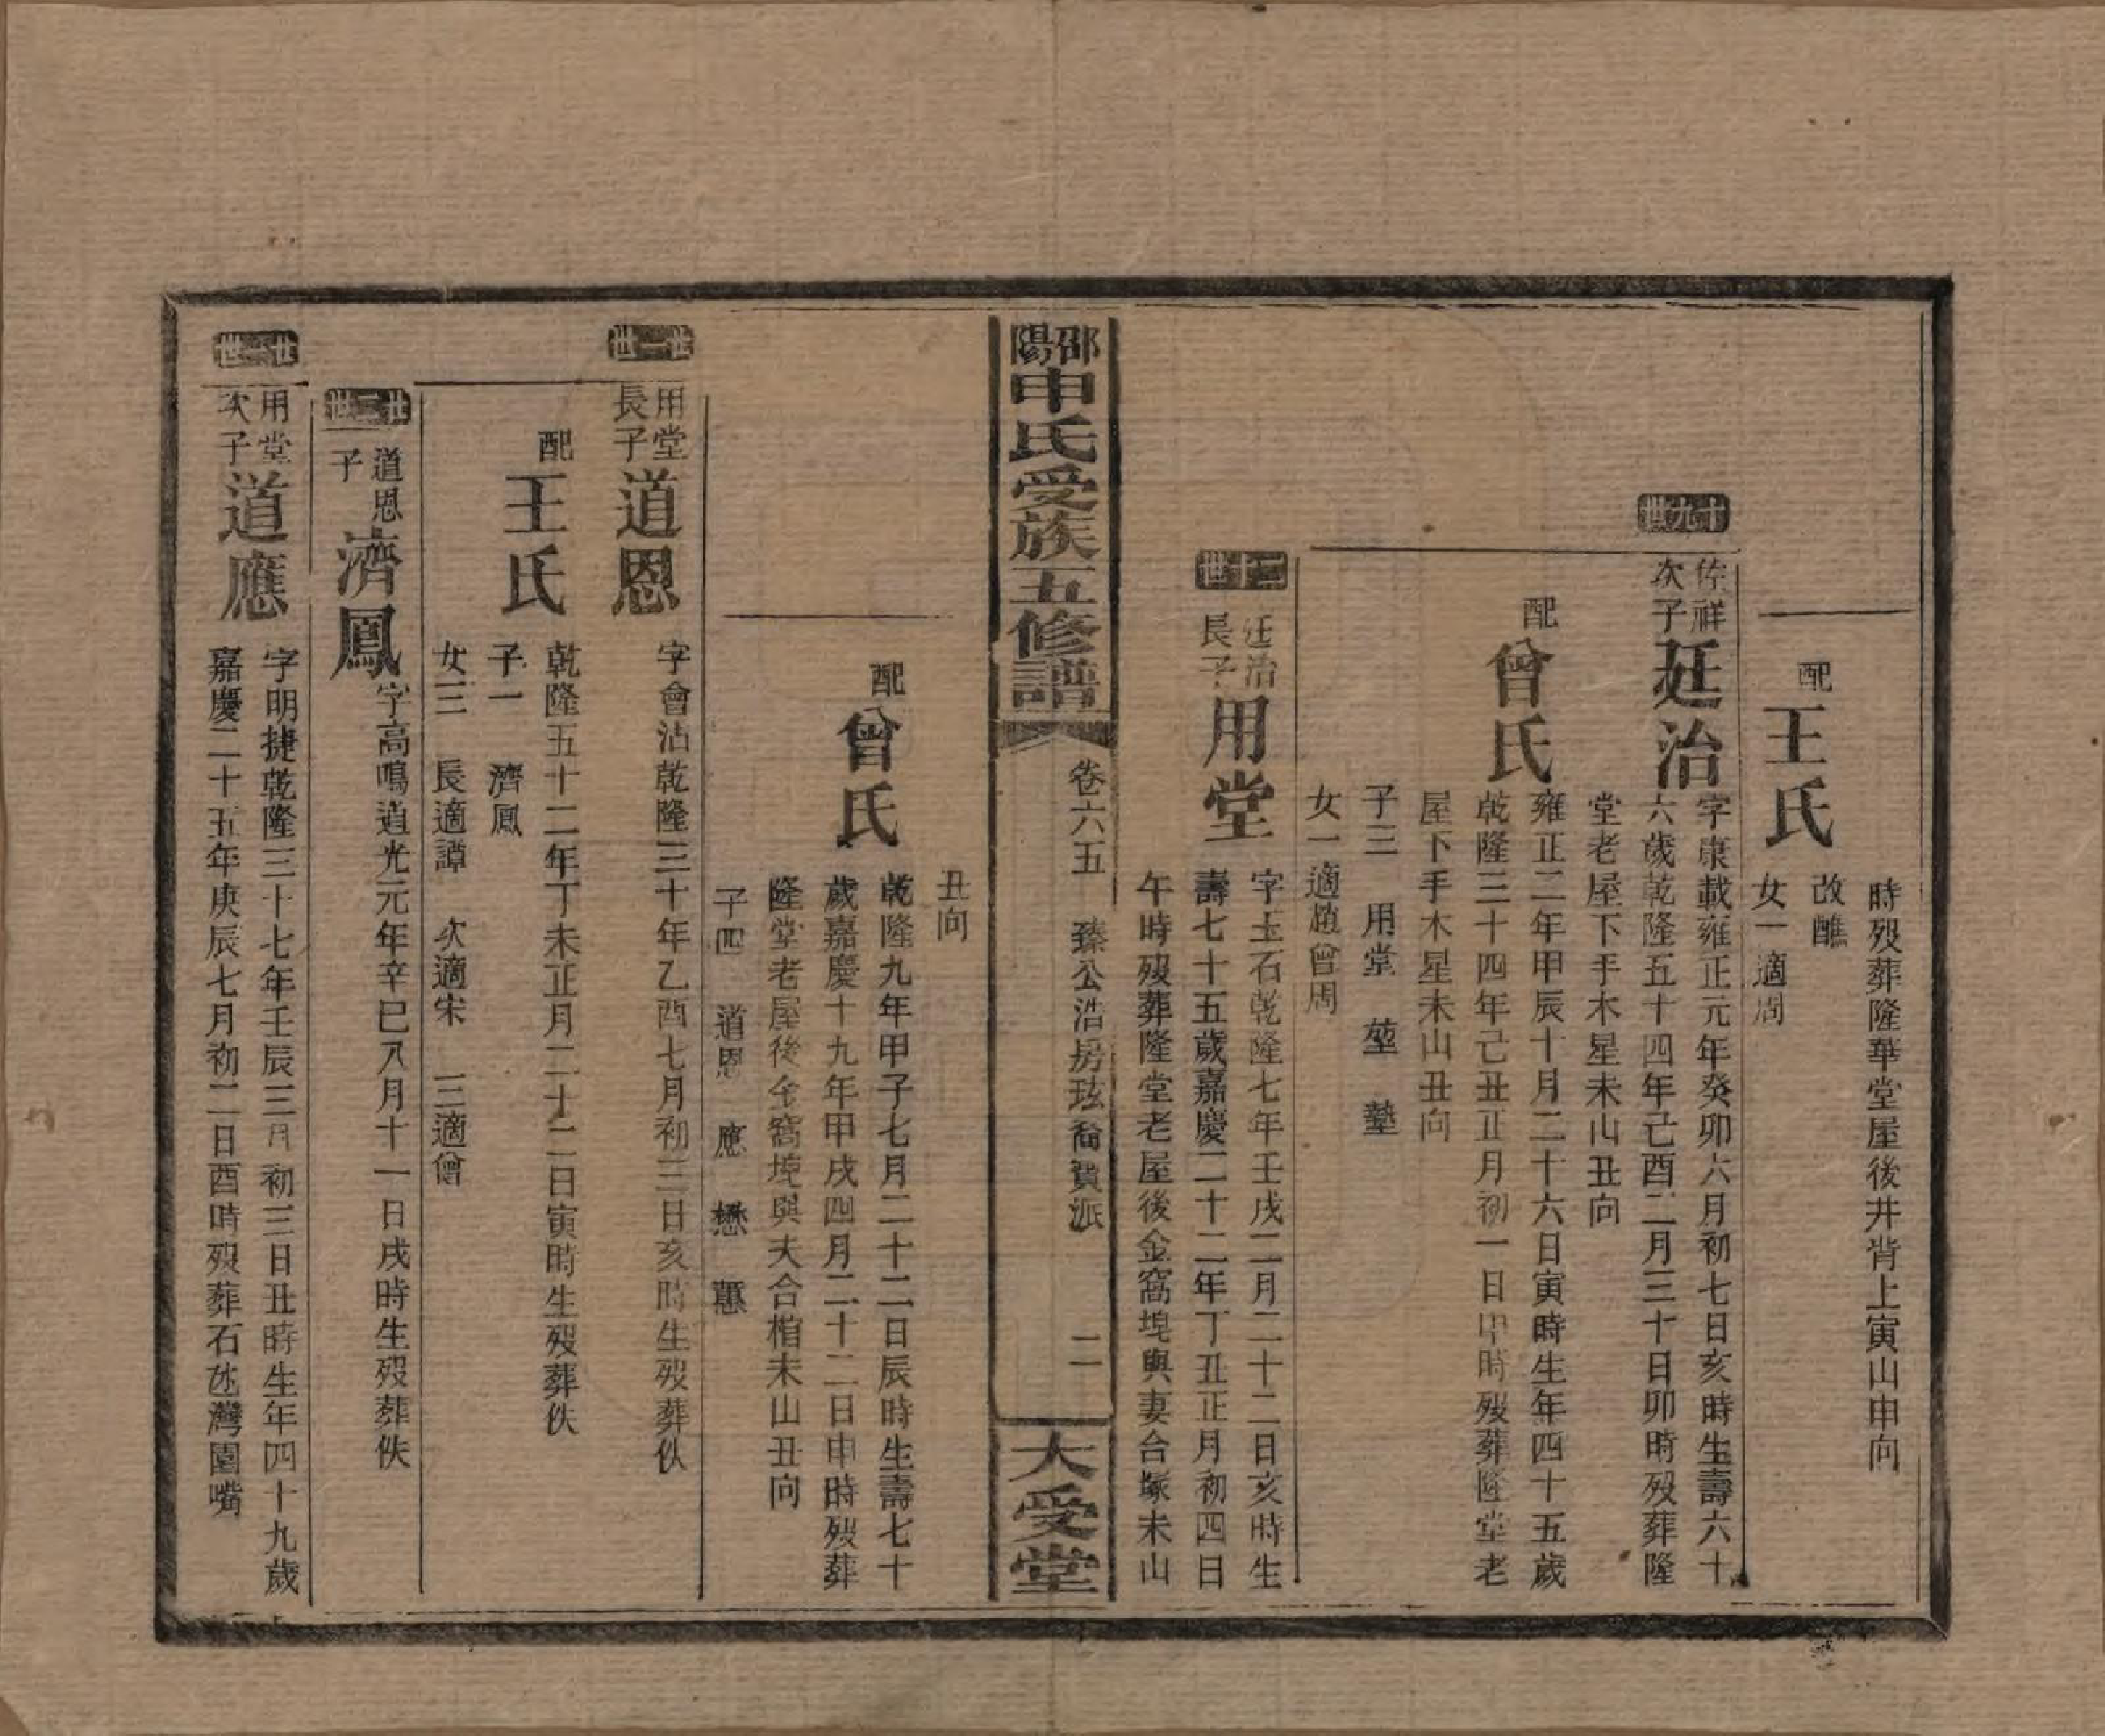 時殁葬隆華堂屋後井背上寅山申向
配王氏
改醮
女一適周
十九世
佐祥次子廷治
字康載雍正元年癸卯六月初七日亥時生壽六十
六歲乾隆五十四年己酉二月三十日卯時殁葬隆
堂老屋下手木星未山丑向
配曾氏
雍正二年甲辰十月二十六日寅時生年四十五歲
乾隆三十四年己丑正月初一日申時殁葬隆堂老
屋下手木星未山丑向
子三 用堂 堃 塾
女一適趙曾周
二十世
廷治長子用堂
字玉石乾隆七年壬戌二月二十二日亥時生
壽七十五歲嘉慶二十二年丁丑正月初四日
午時殁葬隆堂老屋後金窩塊與妻合塚未山
邵陽申氏受族五修譜
卷六五 臻公浩房玹裔貫派 二
大受堂
丑向
配曾氏
乾隆九年甲子七月二十二日辰時生壽七十
歲嘉慶十九年甲戌四月二十二日申時殁葬
隆堂老屋後金窩塊與夫合棺未山丑向
子四 道恩 應 懋 蕙
廿一世
用堂長子道恩
字會沾乾隆三十年乙酉七月初三日亥時生殁葬佚
配王氏
乾隆五十二年丁未正月二十二日寅時生殁葬佚
子一 濟鳳
女三 長適譚 次適宋 三適曾
廿二世
道恩子濟鳳
字高鳴道光元年辛巳八月十一日戌時生殁葬佚
廿一世
用堂次子道應
字明捷乾隆三十七年壬辰三月初三日丑時生年四十九歲
嘉慶二十五年庚辰七月初二日酉時殁葬石灣園嘴